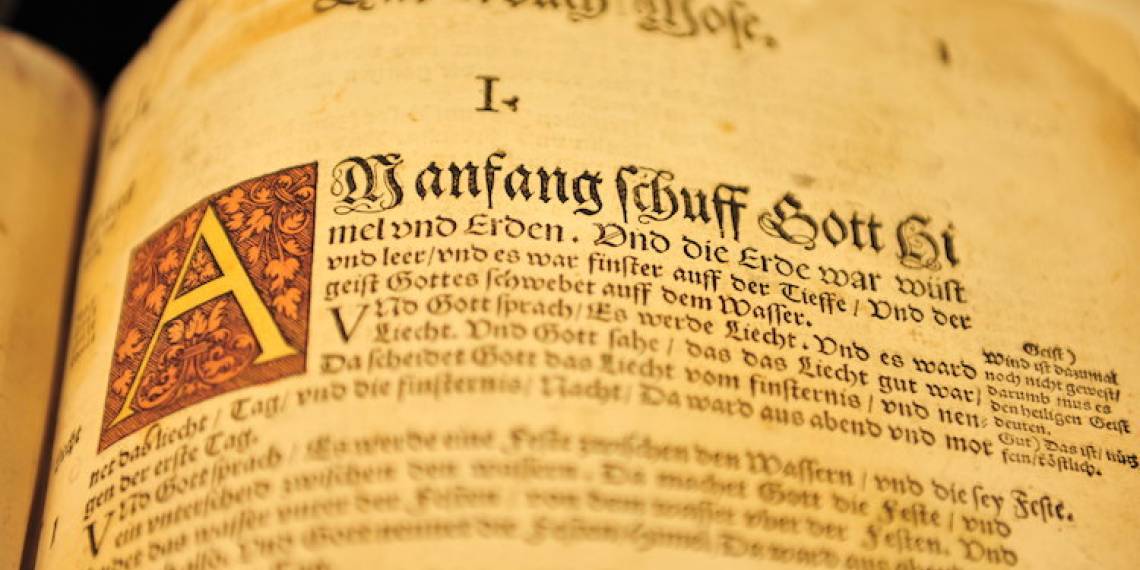 Mose.
I.
AM anfang schuff Gott Hi
mel vnd Erden. Vnd die Erde war wüst
vnd leer/ vnd es war finster auff der Tieffe/ Vnd der
geist Gottes schwebet auff dem Wasser.
VNd Gott sprach/ Es werde Liecht. Vnd es ward
Liecht. Vnd Gott sahe/ das das Liecht gut war/
Da scheidet Gott das Liecht vom finsternis/ vnd nen=
net das liecht/ Tag/ vnd die finsternis/ Nacht/ Da ward aus abend vnd mor
gen der erste Tag.
VNd Gott sprach/ Es werde eine Feste zwischen den Wassern/ vnd die sey
ein vnterscheid zwischen den wassern. Da machet Gott die Feste/ vnd
das wasser vnter der Festen/ von dem wasser vber der Festen. Vnd
Vnd Gott nennet die Da ward aus
Geist)
Wind ist dazumal
noch nicht gewest/
darumb mus es
den heiligen Geist
deuten.
Gut) Das ist/
fein/ köstlich.